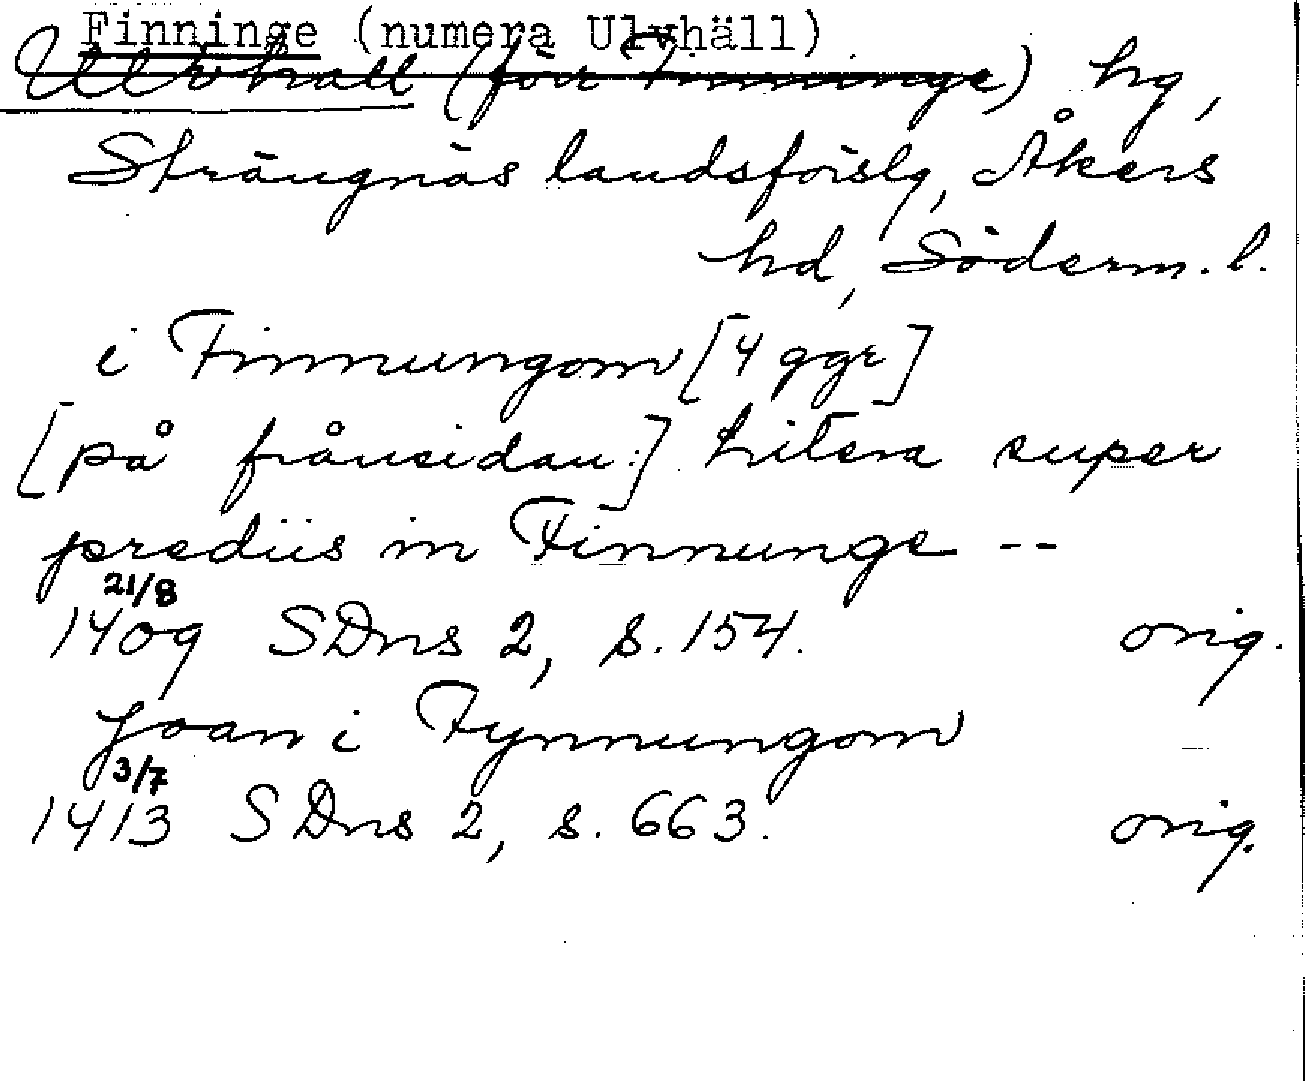 Finninge (numera Ulvhäll)
Ulvhäll (förr Finninge) hg,
Strängnäs landsförslg, Åkers
hd, Söderm. l.
i Finnungom [4 ggr]
[på frånsidan:] Litera super
prediis in Finnunge --
21/8
1409 SDns 2, s. 154. orig.
Joan i Fynnungom
3/7
1413 SDns 2, s. 663. orig.